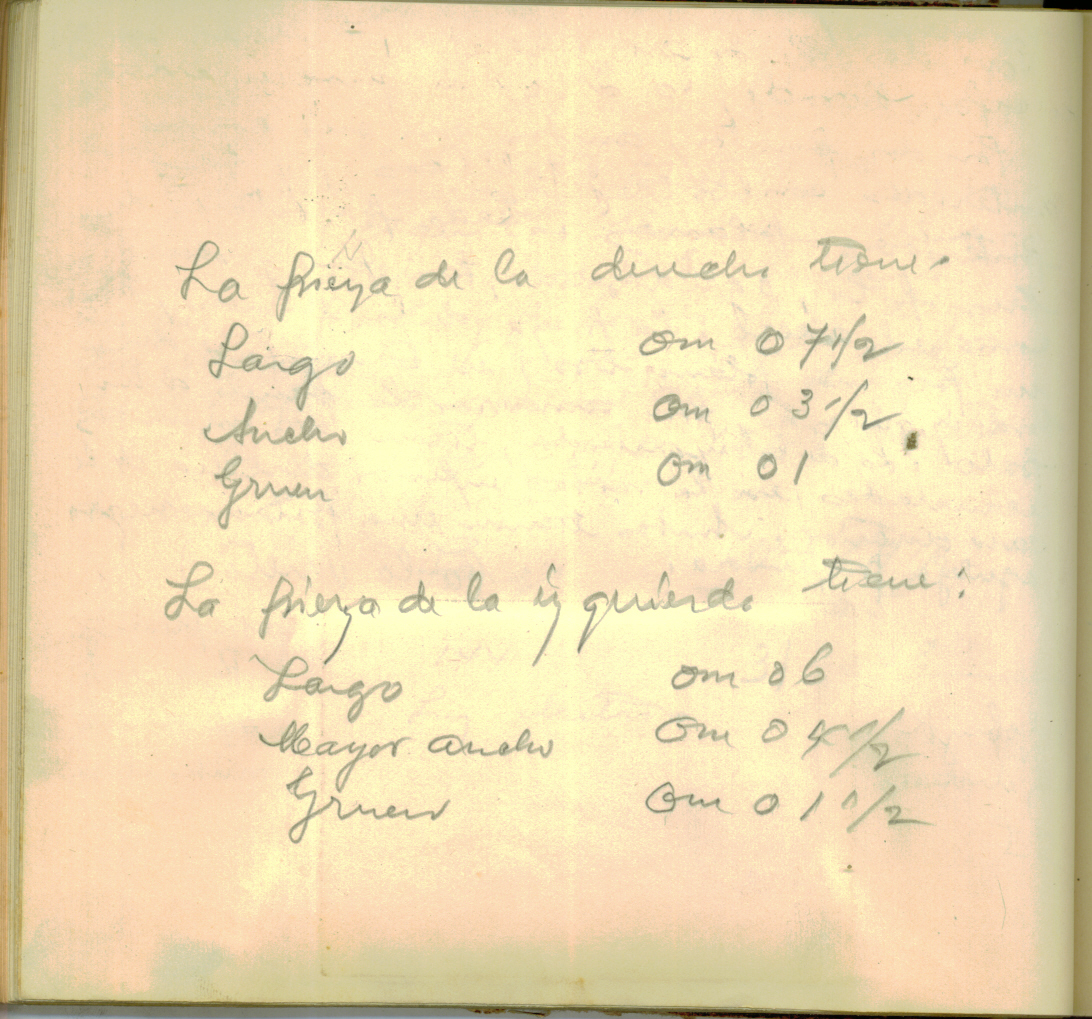 La pieza de la derecha tiene.
Largo 0m 0 7 1/2
Ancho 0m 0 3 1/2
Grueso 0m 01
La pieza de la izquierda tiene:
Largo 0m 06
Mayor ancho 0m 0 4 1/2
Grueso 0m 0 1 1/2